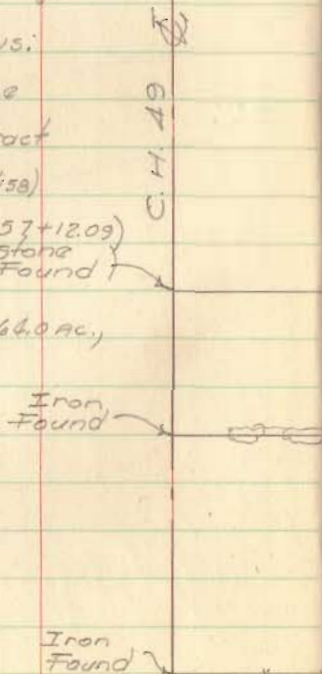 us:
e
C. H. 49
ract
58)
57+12.09)
Stone
Found
64.0 AC.,
Iron
Found
Iron
Found